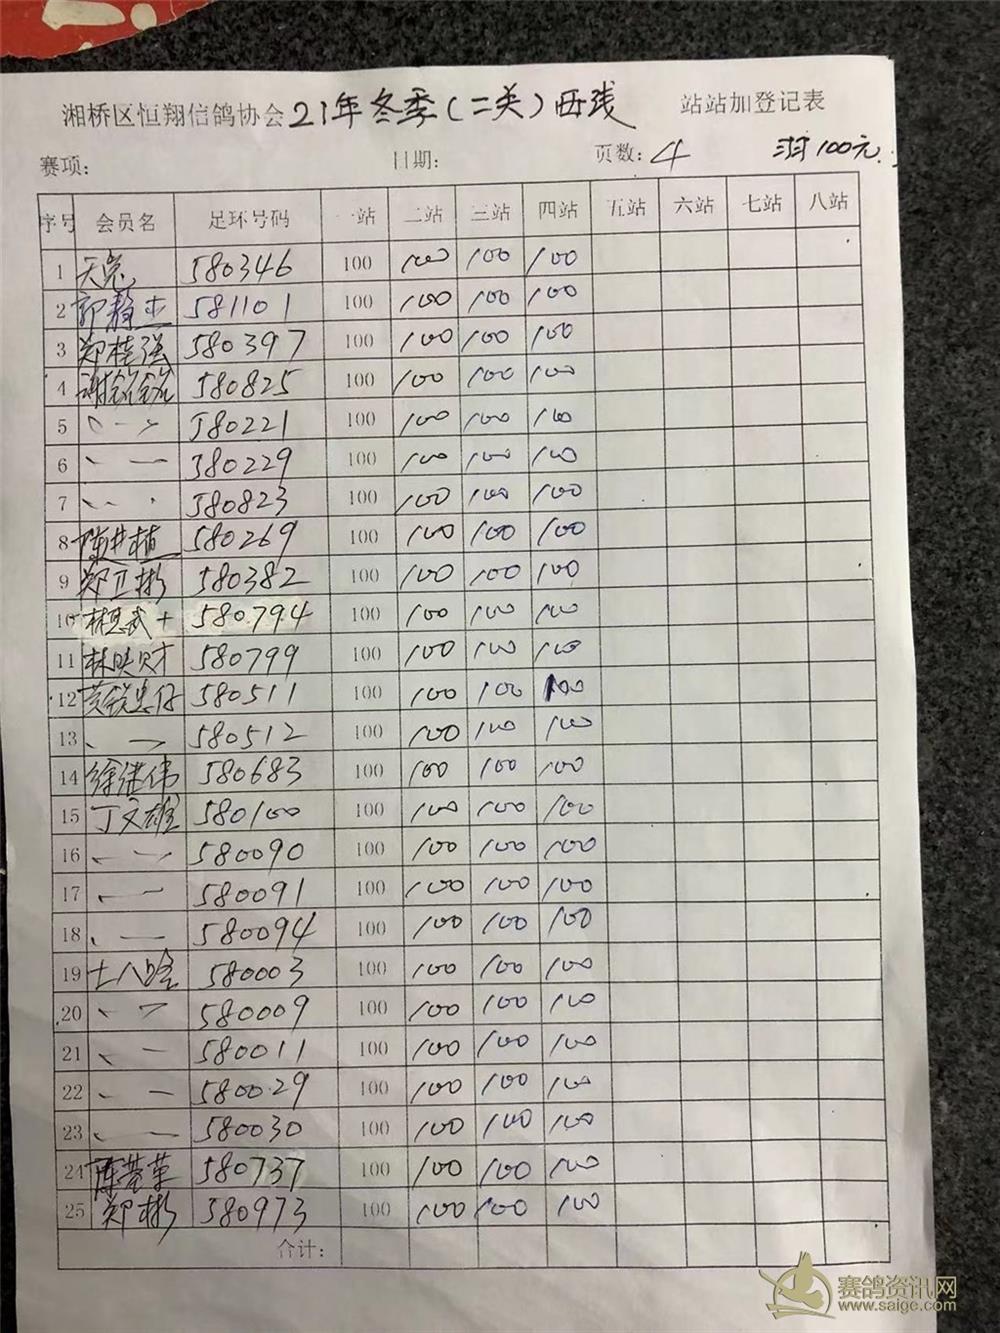 湘桥区恒翔信鸽协会 21年冬季(二关)西线 站站加登记表
赛项: 日期: 页数: 4 羽100元
序号 会员名 足环号码 一站 二站 三站 四站 五站 六站 七站 八站
1 天亮 580346 100 100 100 100
2 581101 100 100 100 100
3 郑桂强 580397 100 100 100 100
4 580825 100 100 100 100
5 〃 580221 100 100 100 100
6 〃 580229 100 100 100 100
7 〃 580823 100 100 100 100
8 陈井植 580269 100 100 100 100
9 郑卫彬 580382 100 100 100 100
10 林思武 + 580794 100 100 100 100
11 林映财 580799 100 100 100 100
12 580511 100 100 100 100
13 〃 580512 100 100 100 100
14 徐继伟 580683 100 100 100 100
15 丁文雄 580100 100 100 100 100
16 〃 580090 100 100 100 100
17 〃 580091 100 100 100 100
18 〃 580094 100 100 100 100
19 580003 100 100 100 100
20 〃 580009 100 100 100 100
21 〃 580011 100 100 100 100
22 〃 580029 100 100 100 100
23 〃 580030 100 100 100 100
24 580737 100 100 100 100
25 郑彬 580973 100 100 100 100
合计:
赛鸽资讯网
www.saige.com